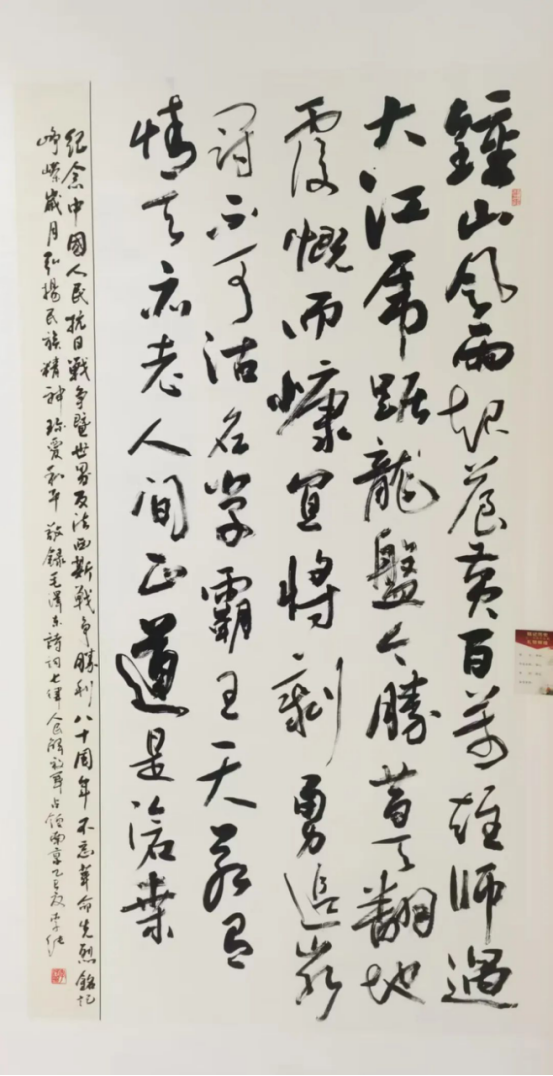 鍾山風雨起蒼黄百萬雄師過
大江虎踞龍盤今勝昔天翻地
覆慨而慷宜將剩勇追窮
冠不可沽名學霸王天若有
情天亦老人間正道是滄桑
紀念中國人民抗日戰爭暨世界反法西斯戰爭勝利八十周年不忘革命先烈銘記
崢嶸歲月弘揚民族精神珍愛和平敬錄毛澤東詩詞七律人民解放軍占領南京乙巳夏李